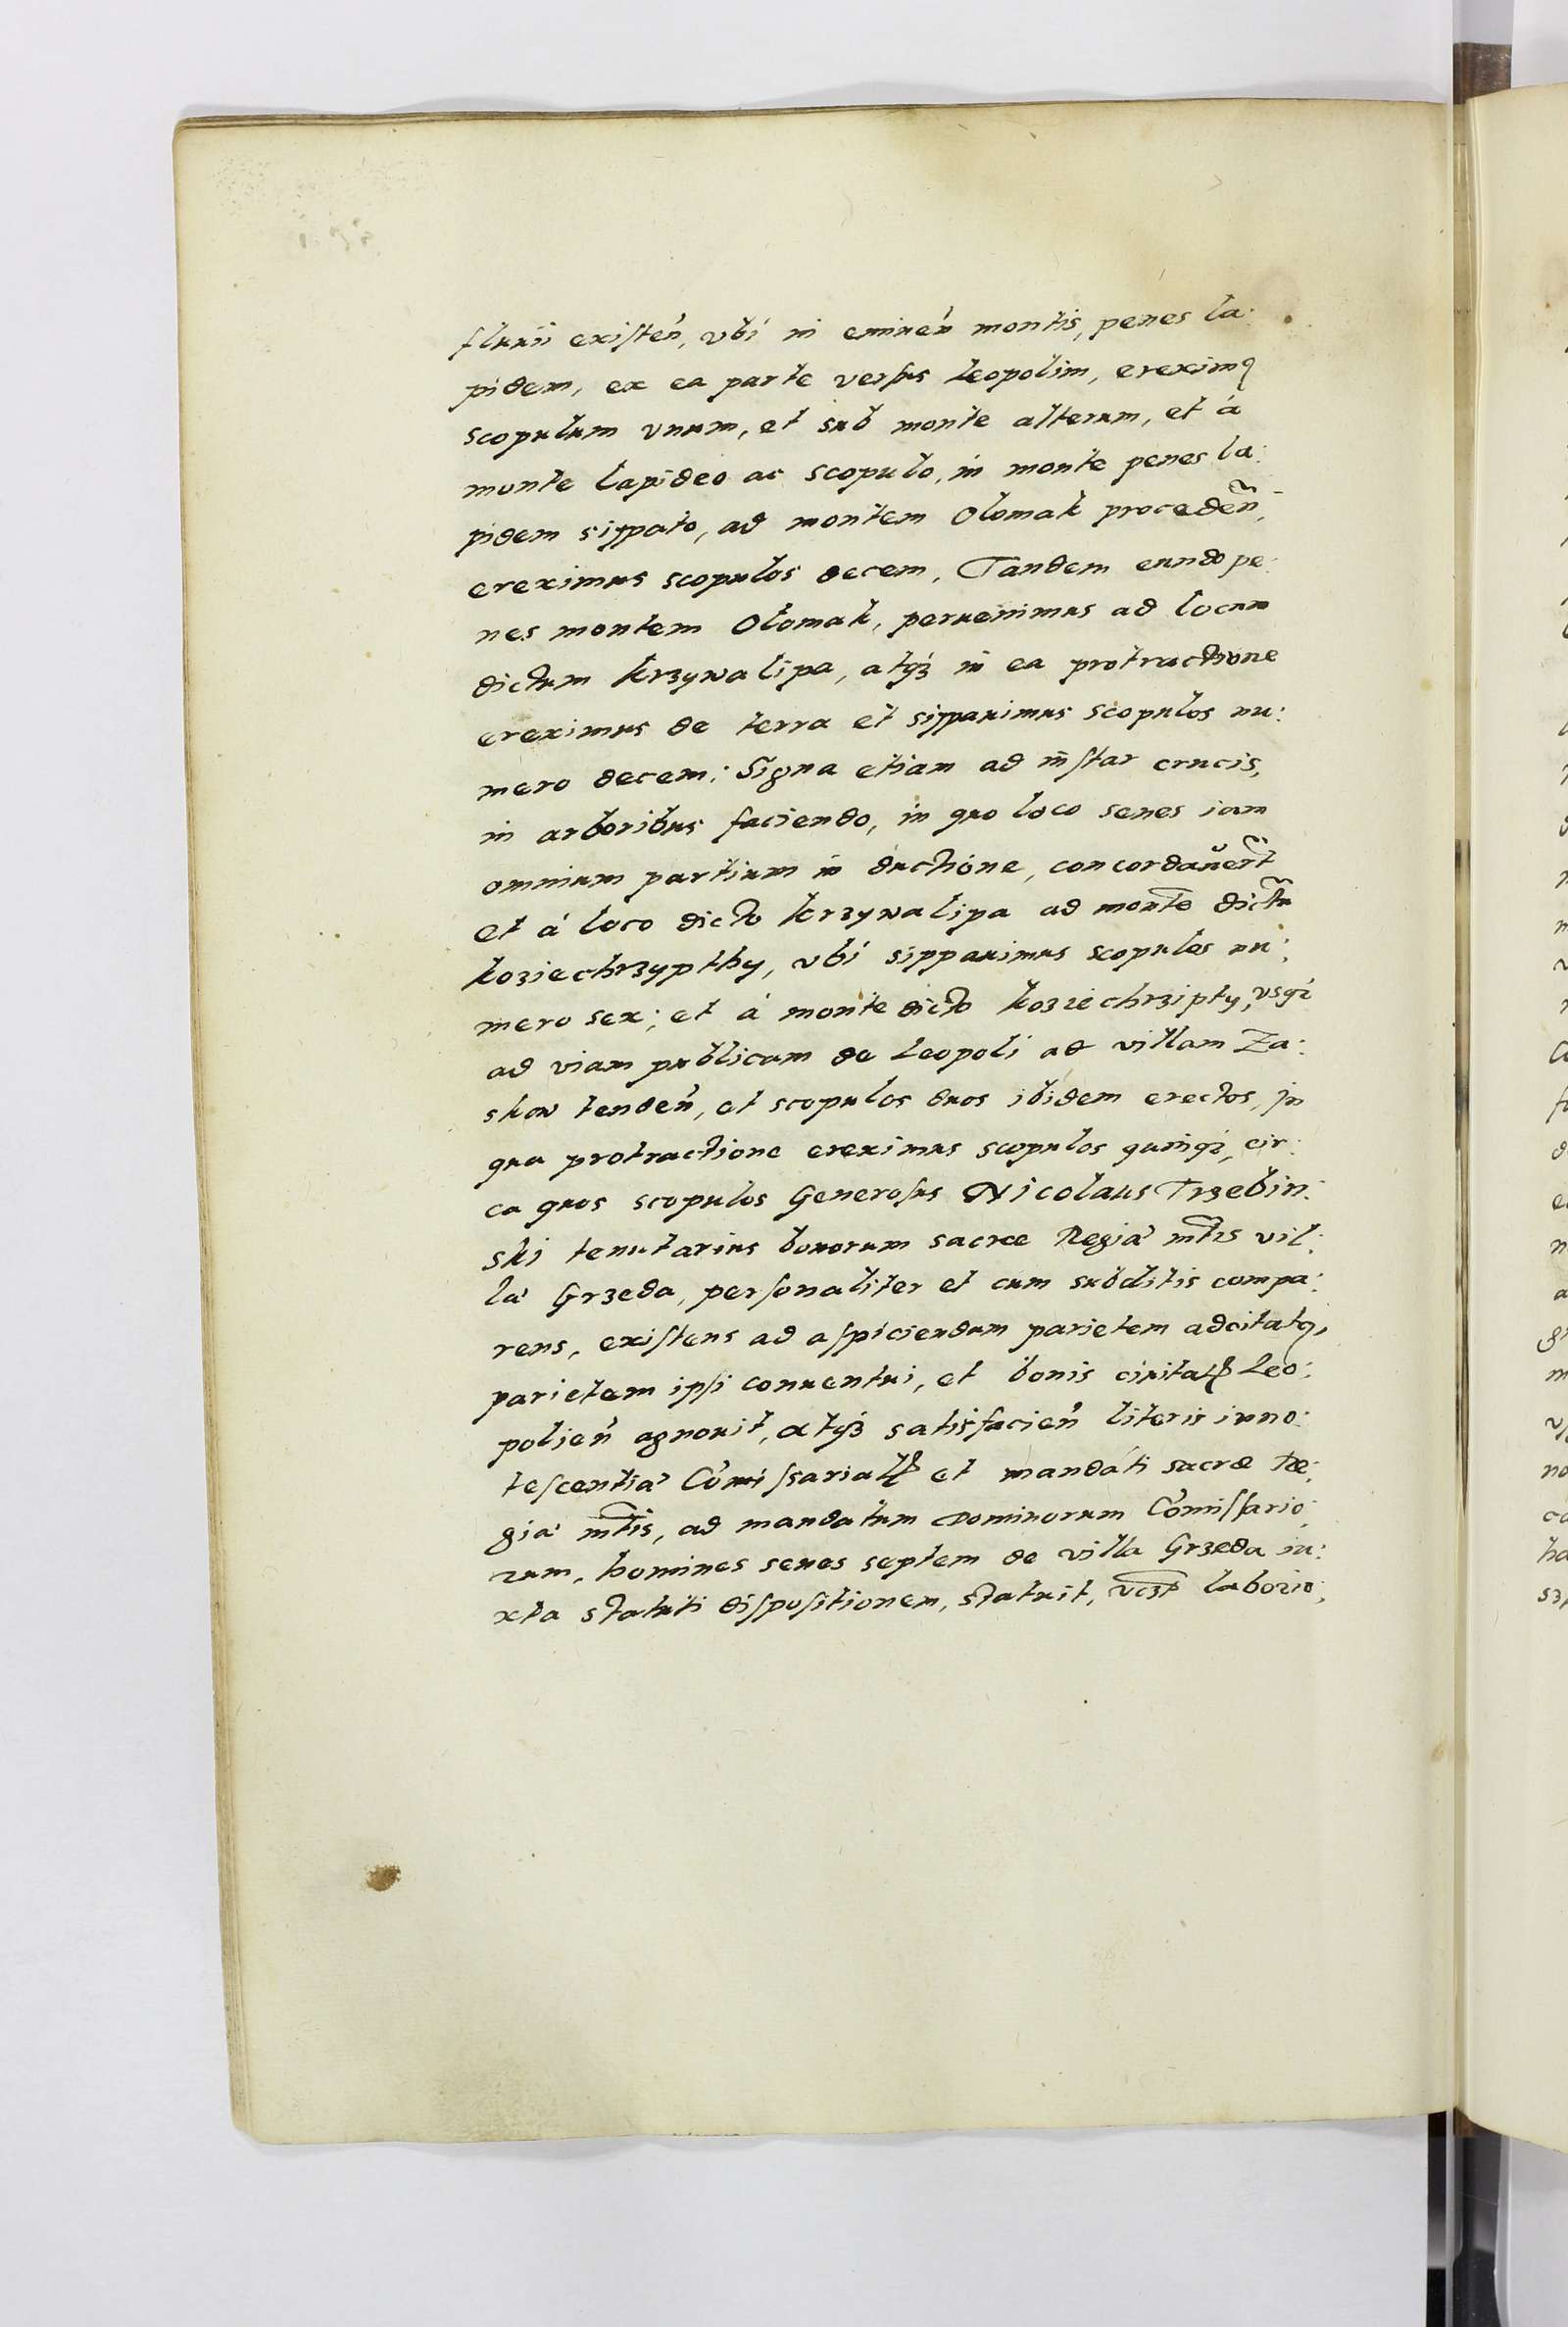 fluuii existeń, vbi in emineń montis, penes la:
pidem, ex ea parte versus Leopolim, ereximꝰ
scopulum vnum, et sub monte alterum, et á
monte lapideo ac scopulo, in monte penes la:
pidem sippato, ad montem Olomak procedeñ,
ereximus scopulos decem, Tandem eundo pe:
nes montem Olomak, peruenimus ad locum
dictum krzywa lipa, atqꝫ in ea protractione
ereximus de terra et sippauimus scopulos nu:
mero decem: Signa etiam ad instar crucis,
in arboribus faciendo, in quo loco senes iam
omnium partium in ductione, concordauer̃t
et á loco dicto krzywa lipa ad monte dictũ
koziechrzypthy, vbi sippauimus scopulos nu:
mero sex; et á monte dicto koziechrzipty, vsqꝫ
ad viam publicam de Leopoli ad villam Za:
skow tendeń, et scopulos duos ibidem erectos, in
qua protractione ereximus scopulos quinqꝫ, cir:
ca quos scopulos Generosus Nicolaus Trzebin:
ski tenutarius bonorum sacræ Regia' mt̃is vil:
la' Grzeda, personaliter et cum subditis compa:
rens, existens ad aspiciendum parietem adcitatꝰ,
parietem ipsi conuentui, et bonis ciuitaꝭ Leo:
polień agnouit, atqꝫ satisfacień literis inno:
tescentia' Comissariaꝭ et mandáti sacræ Re:
gia' mt̃is, ad mandatum Dominorum Comissario:
rum, homines senes septem de villa Grzeda iu:
xta statuti dispositionem, statuit, vcꝫt laborio: